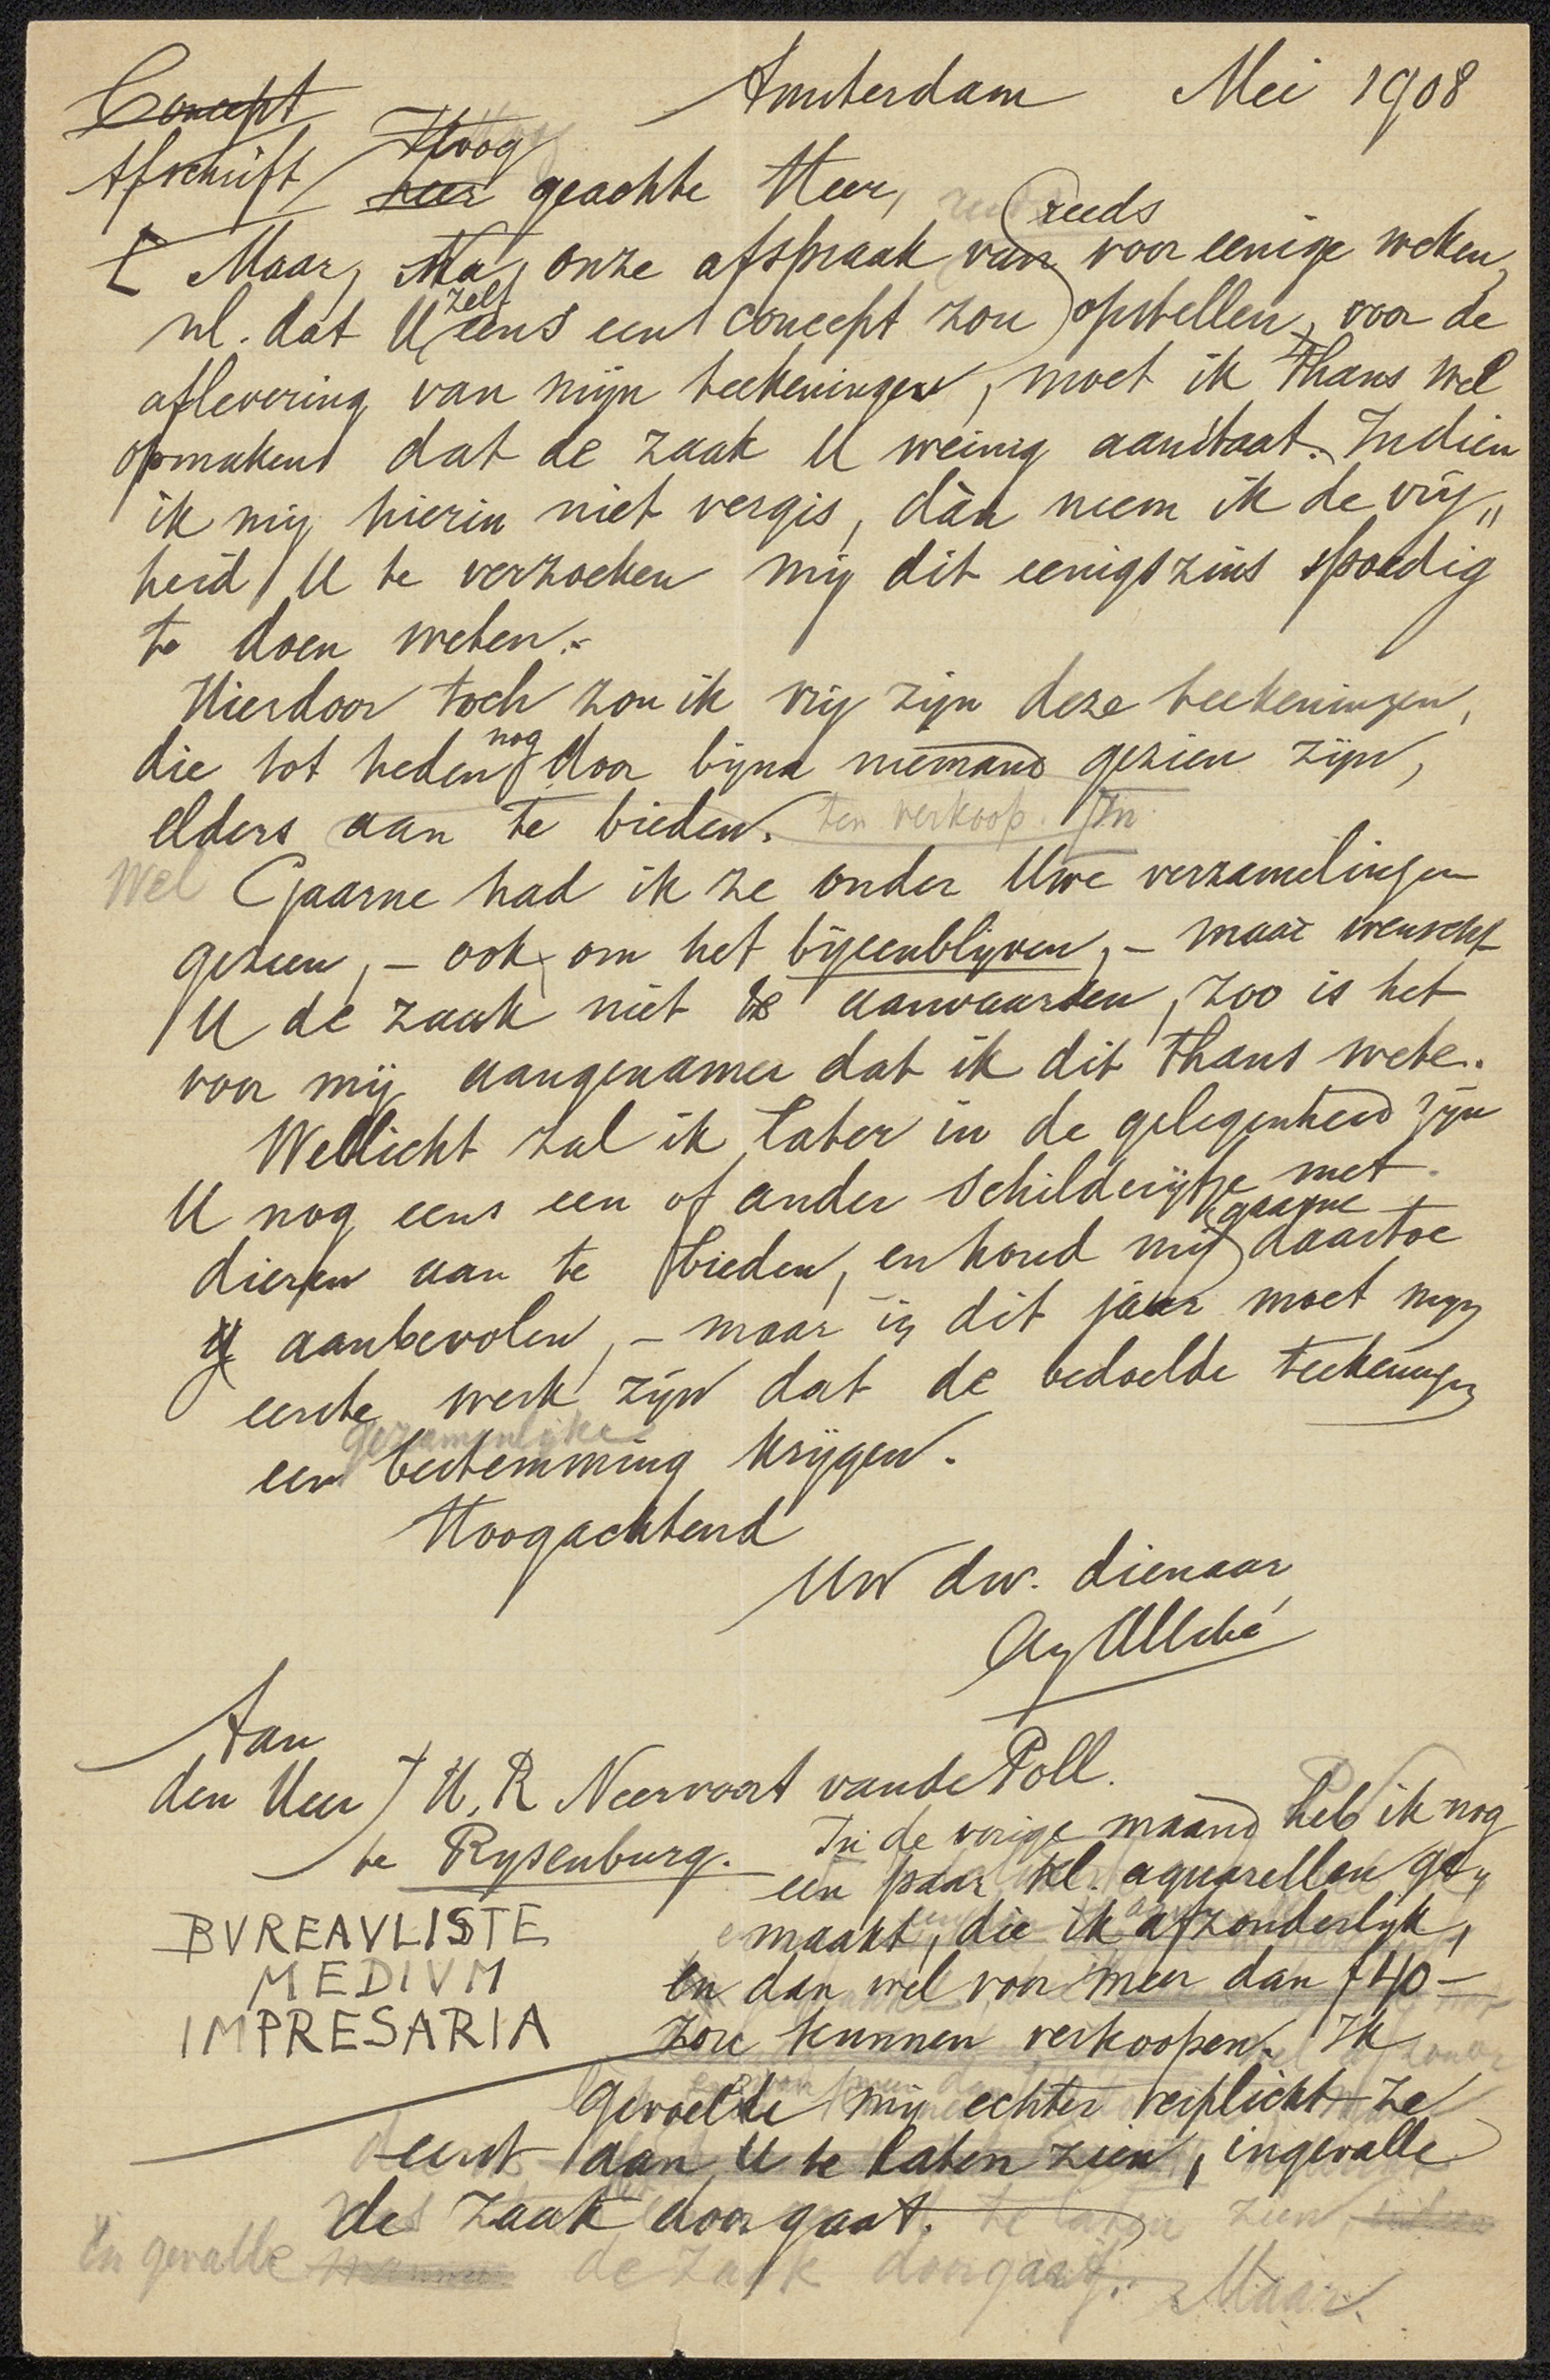 Concept
Amsterdam Mei 1908
Afschrift
Hoog
zeer geachte Heer,
reeds
Maar, Na, onze afspraak van voor eenige weken,
zelf
nl. dat U eens een concept zou opstellen, voor de
aflevering van mijn teekeningen, moet ik thans wel
opmaken dat de zaak U weinig aanstaat. Indien
ik mij hierin niet vergis, dàn neem ik de vrij„
heid U te verzoeken mij dit eenigszins spoedig
te doen weten.
Hierdoor toch zou ik vrij zijn deze teekeningen,
nog
die tot heden door bijna niemand gezien zijn,
elders aan te bieden. ten verkoop. In
Wel Gaarne had ik ze onder Uwe verzamelingen
gezien, – ook om het bijeenblijven, – maar wenscht
U de zaak niet te aanvaarden, zoo is het
voor mij aangenamer dat ik dit thans wete.
Wellicht zal ik later in de gelegenheid zijn
U nog eens een of ander schilderijtje met
gaarne
dieren aan te bieden, en houd mij daartoe
aanbevolen, – maar in dit jaar moet mijn
eerste werk zijn dat de bedoelde teekeningen
gezamenlijke
een bestemming krijgen.
Hoogachtend
Uw dw. dienaar
Ag Allebé
Aan
den Heer J H. R Neervoort van de Poll.
te Rysenburg.
In de vorige maand heb ik nog
een paar kl. aquarellen ge„
maakt, die ik afzonderlijk,
en dan wel voor meer dan f 40 –
zou kunnen verkoopen. Ik
gevoelde mij echter verplicht ze
eerst aan U te laten zien, ingevalle
de zaak doorgaat.
BVREAVLISTE
MEDIVM
IMPRESARIA
te laten zien, indien
in gevalle de zaak doorgaat. Maar.